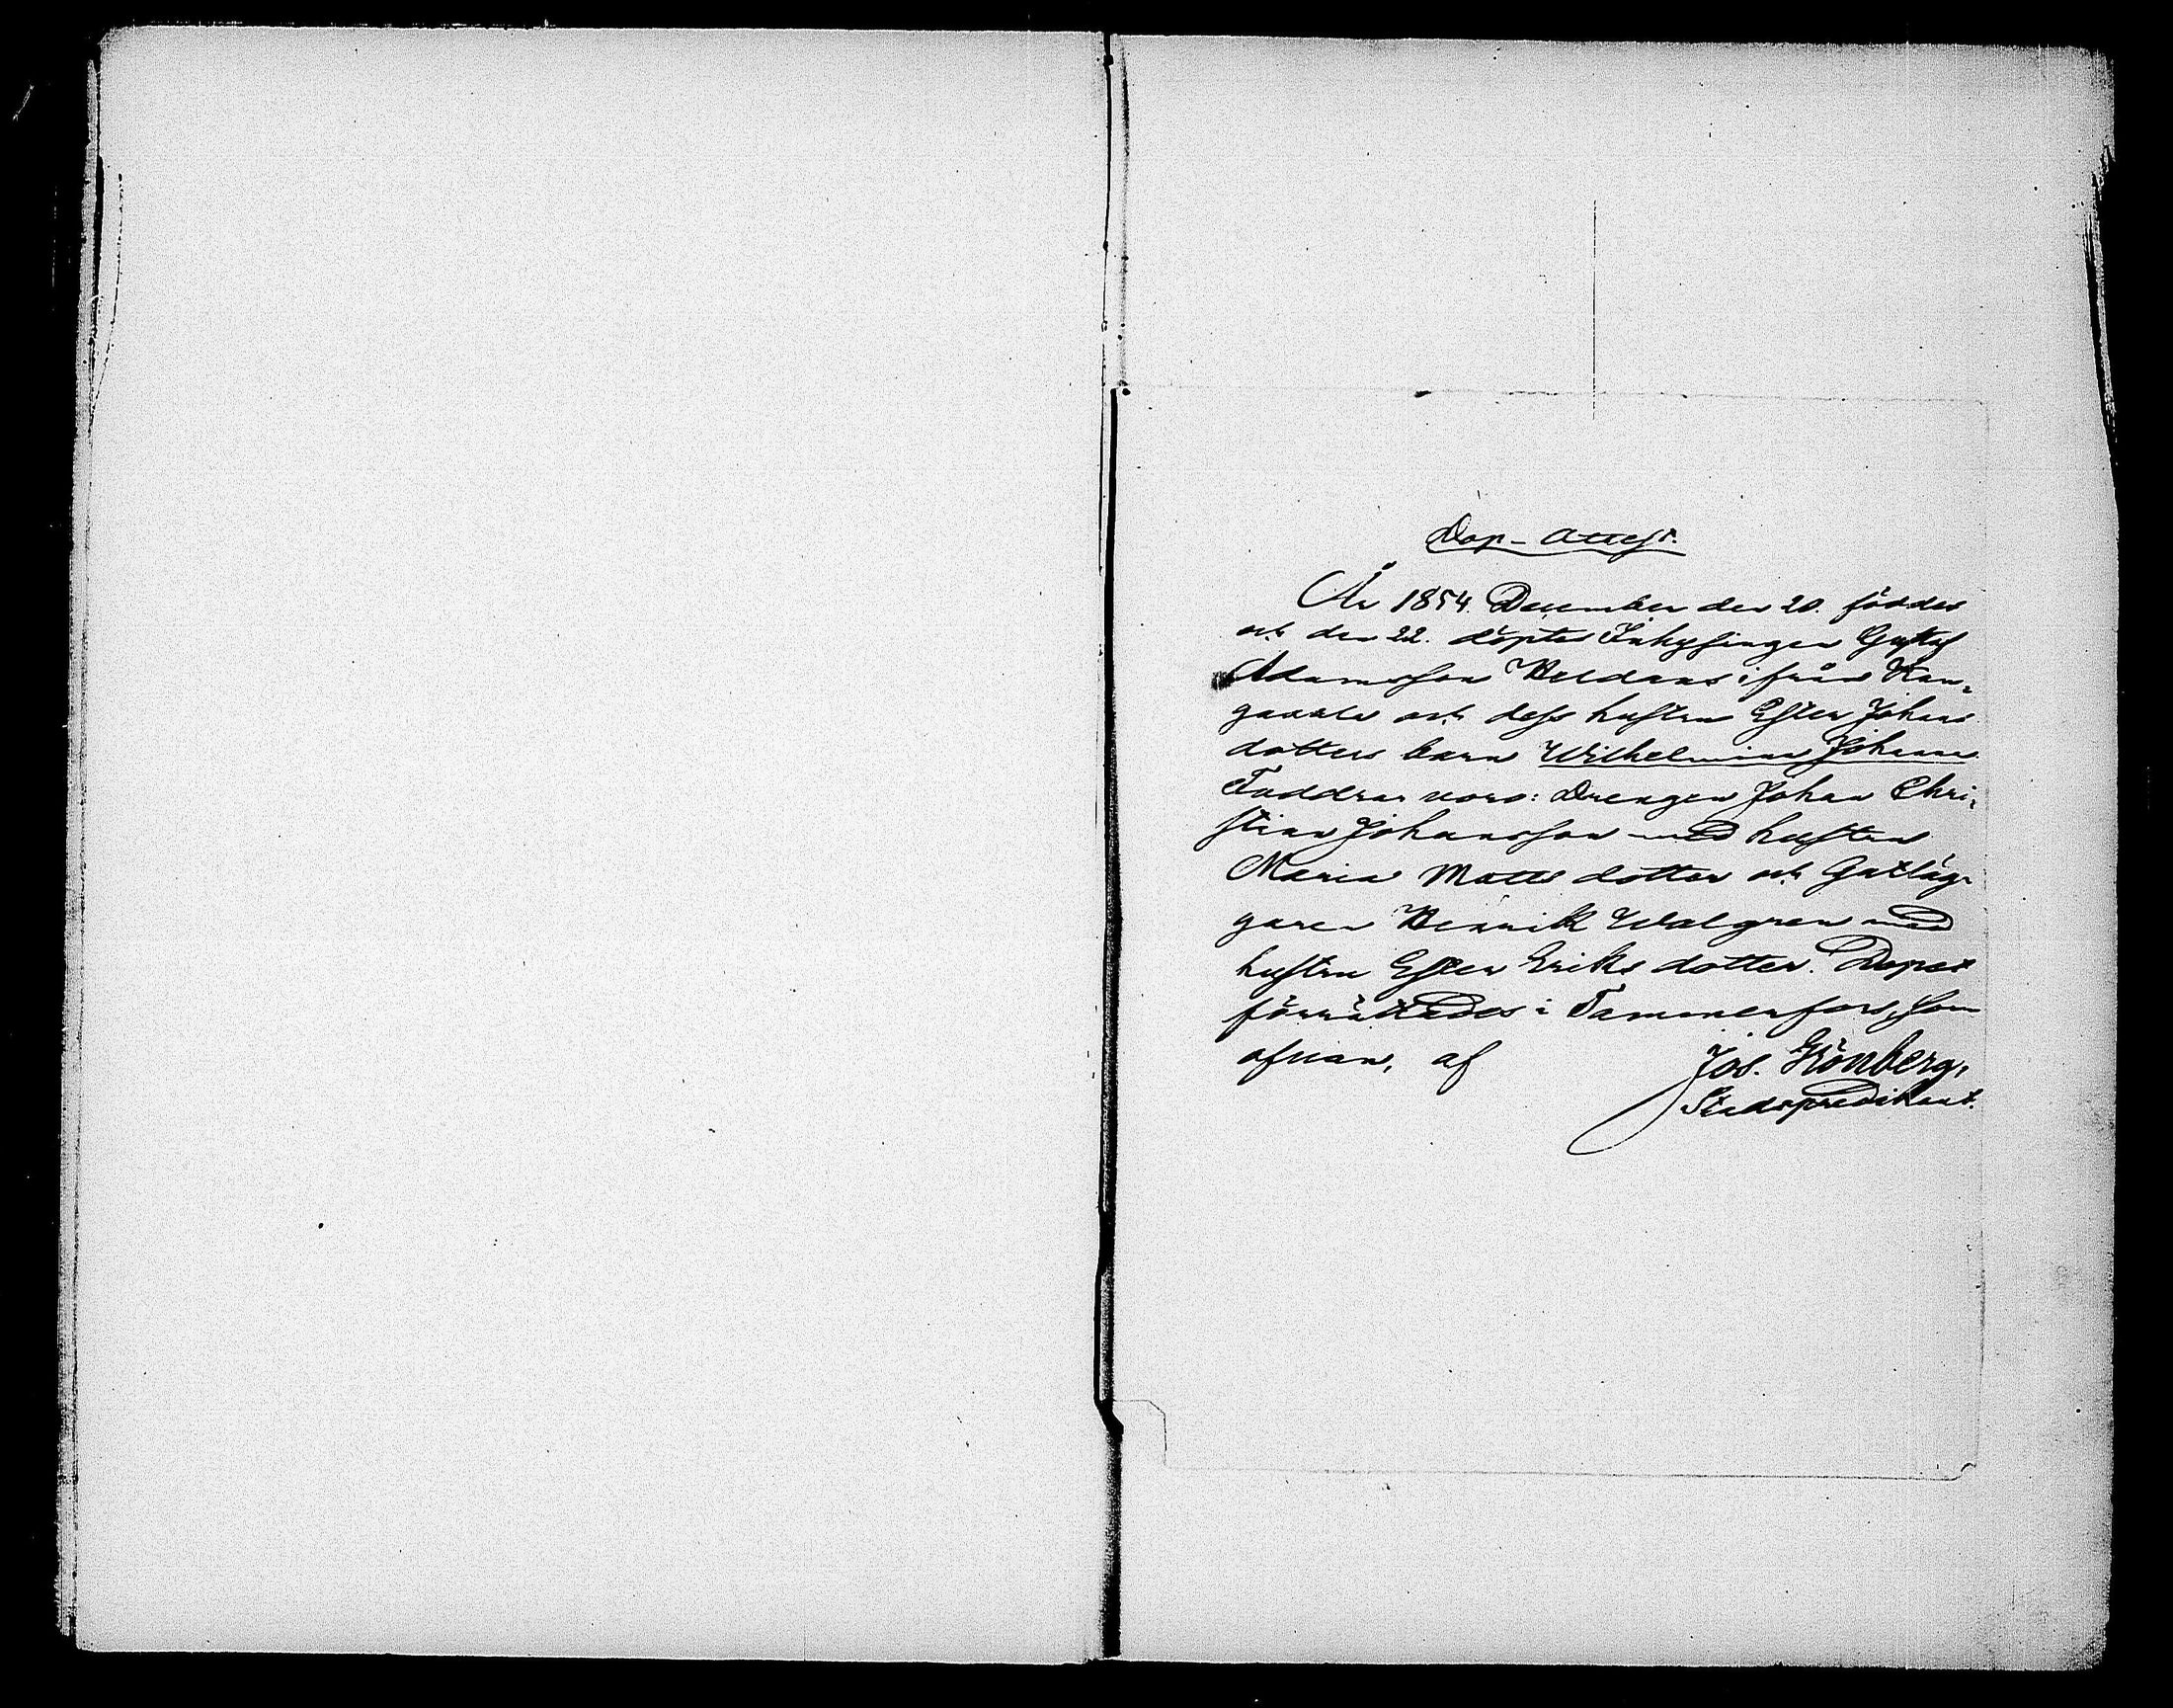 Dop-Attest.
År 1854. December den 20. föddes
och den 22. döptes Inhysingen Gustaf
Adamsson Heldans ifrån Kan-
gasala och dess hustru Ester Johans
dotters barn Wilhelmina Johanna
Faddrar voro: Drengen Johan Chri-
stian Johansson med hustru
Maria Matts dotter och Gatläg-
garen Henrik Walgren med
hustru Ester Eriks dotter. Dopet
förrättades i Tammerfors, som
ofvan, af
Jos. Grönberg,
Stadspredikant.